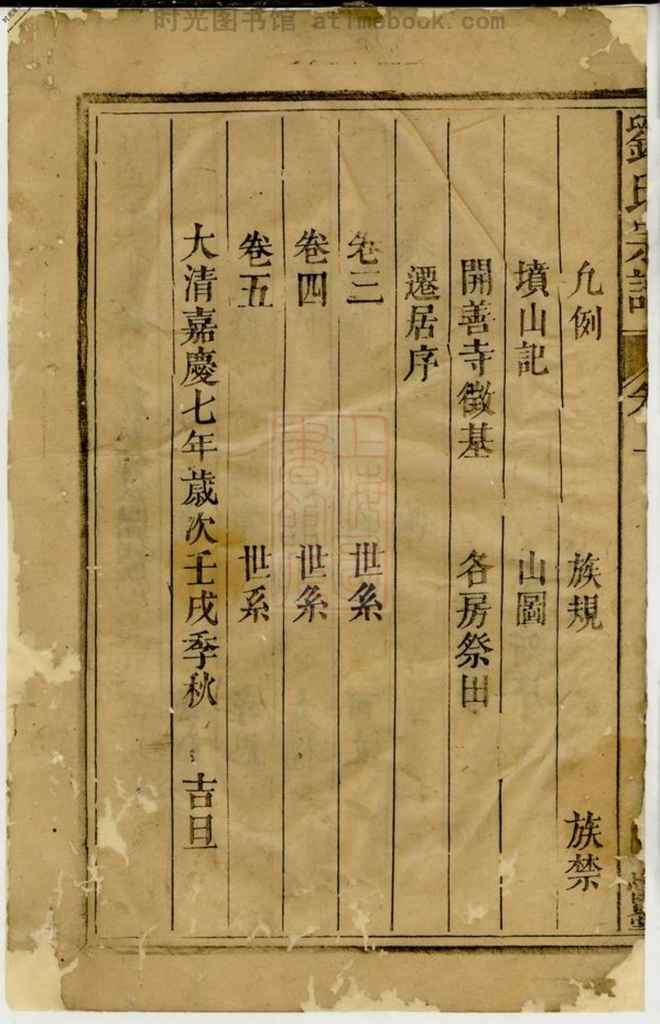 时光图书馆 atimebook.com
劉氏宗譜 卷一
凡例 族規 族禁
墳山記 山圖
開善寺徵基 各房祭田
遷居序
卷三 世系
卷四 世系
卷五 世系
大清嘉慶七年歲次壬戌季秋 吉旦